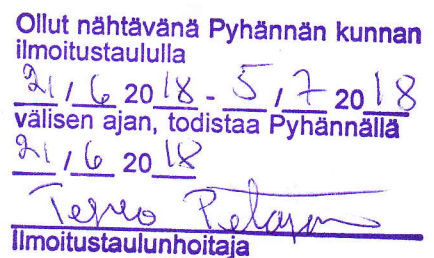 Ollut nähtävänä Pyhännän kunnan
ilmoitustaululla
21 / 6 2018 - 5 / 7 2018
välisen ajan, todistaa Pyhännällä
21 / 6 2018
Ilmoitustaulunhoitaja